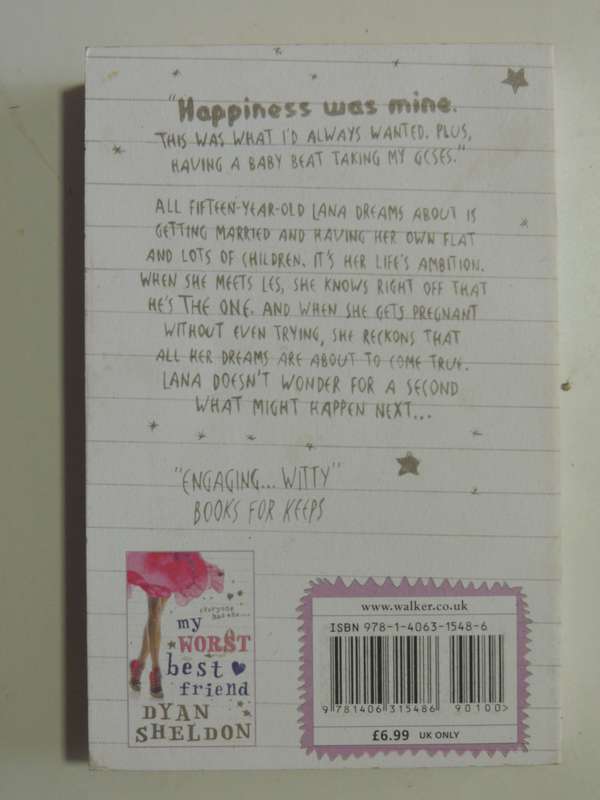 "Happiness was mine.
THIS WAS WHAT I'D ALWAYS WANTED. PLUS,
HAVING A BABY BEAT TAKING MY GCSES."
ALL FIFTEEN-YEAR-OLD LANA DREAMS ABOUT IS
GETTING MARRIED AND HAVING HER OWN FLAT
AND LOTS OF CHILDREN. IT'S HER LIFE'S AMBITION.
WHEN SHE MEETS LES, SHE KNOWS RIGHT OFF THAT
HE'S THE ONE. AND WHEN SHE GETS PREGNANT
WITHOUT EVEN TRYING, SHE RECKONS THAT
ALL HER DREAMS ARE ABOUT TO COME TRUE.
LANA DOESN'T WONDER FOR A SECOND
WHAT MIGHT HAPPEN NEXT...
"ENGAGING... WITTY"
BOOKS FOR KEEPS
everyone
has one...
my
WORST
best
friend
DYAN
SHELDON
www.walker.co.uk
ISBN 978-1-4063-1548-6
9 781406 315486 90100>
£6.99 UK ONLY